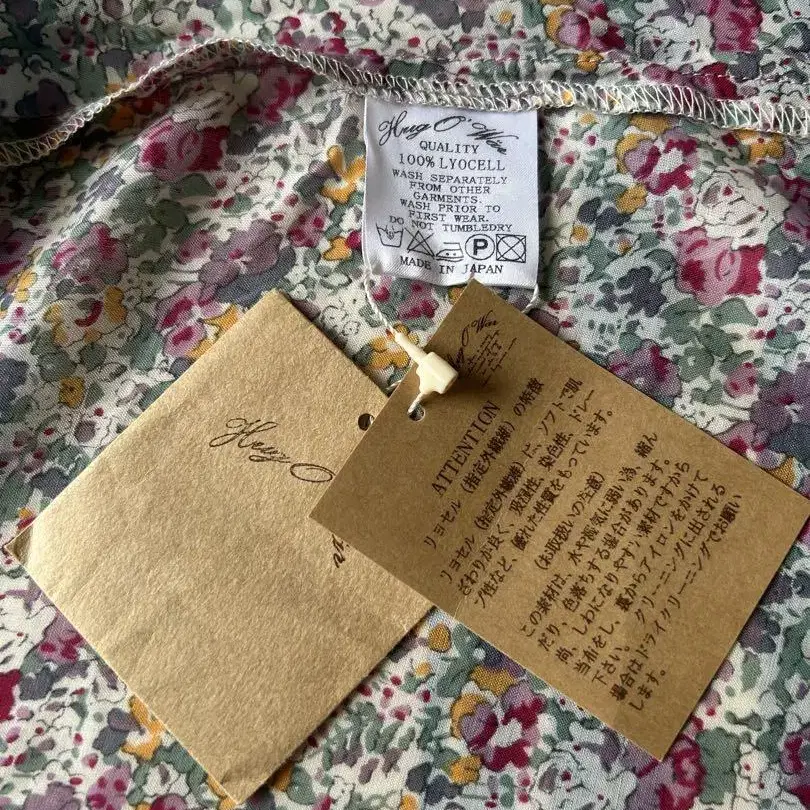 Hug O'Wär
QUALITY
100% LYOCELL
WASH SEPARATELY
FROM OTHER
GARMENTS.
WASH PRIOR TO
FIRST WEAR.
DO NOT TUMBLEDRY
P
MADE IN JAPAN
Hug O'
Hug O'Wär
ATTENTION
リヨセル（指定外繊維）の特徴
リヨセル（指定外繊維）は、ソフトで肌
ざわりが良く、吸湿性、染色性、ドレー
プ性など、優れた性質をもっています。
（お取扱いの注意）
この素材は、水や湿気に弱い為、縮ん
だり、色落ちする場合があります。
尚、しわになりやすい素材ですから
当布をし、裏からアイロンをかけて
下さい。クリーニングに出される
場合はドライクリーニングでお願い
します。